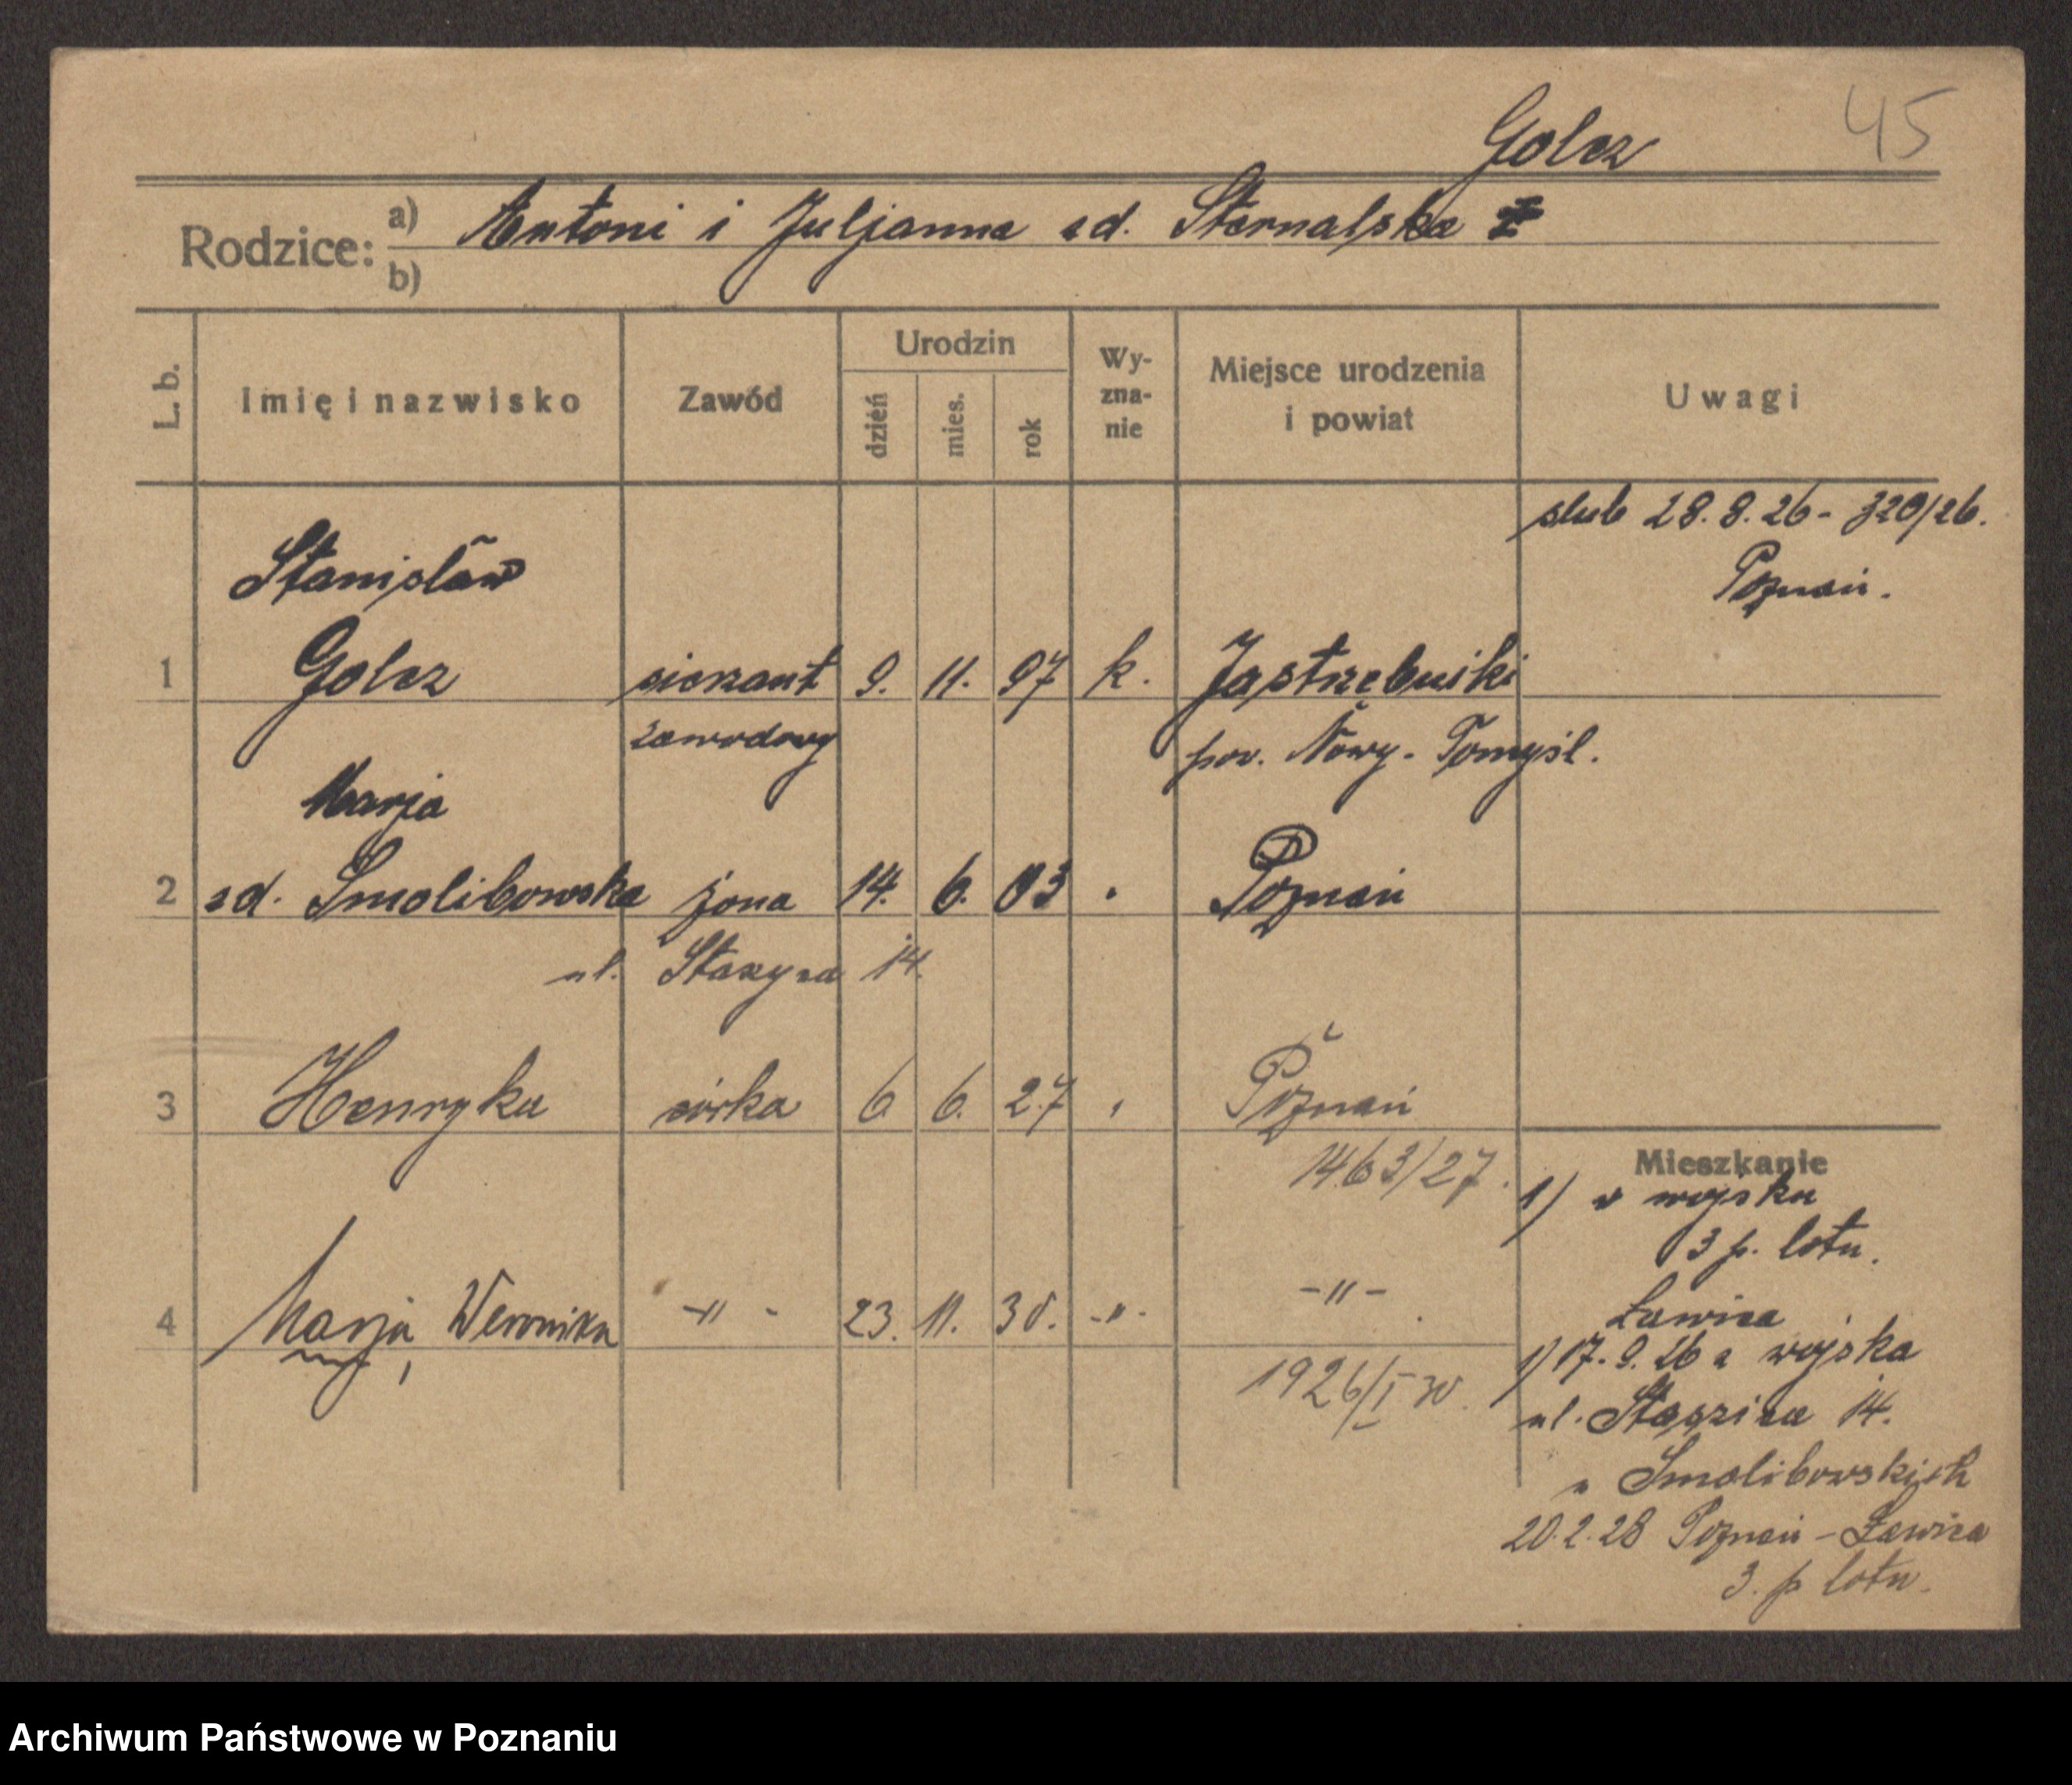 45
Golcz
Rodzice: a) Antoni i Juljanna zd. Sternalska
b)
L. b. Imię i nazwisko Zawód Urodzin dzień mies. rok Wyznanie Miejsce urodzenia i powiat Uwagi
ślub 28.8.26 - 320/26.
Poznań.
Stanisław
1 Golcz sierżant 9. 11. 97 k. Jastrzębniki
zawodowy pow. Nowy-Tomyśl.
Marja
2 zd. Smolibowska żona 14. 6. 03 " Poznań
ul. Staszyca 14.
3 Henryka córka 6 6. 27 " Poznań
1463/27.
4 Marja, Weronika -"- 23. 11. 30. -"- -"-
1926/I 30.
Mieszkanie
1) w wojsku
3 p. lotn.
Ławica
1) 17.9.26 z wojska
ul. Staszica 14.
u Smolibowskich
20.2.28 Poznań - Ławica
3. p lotn.
Archiwum Państwowe w Poznaniu